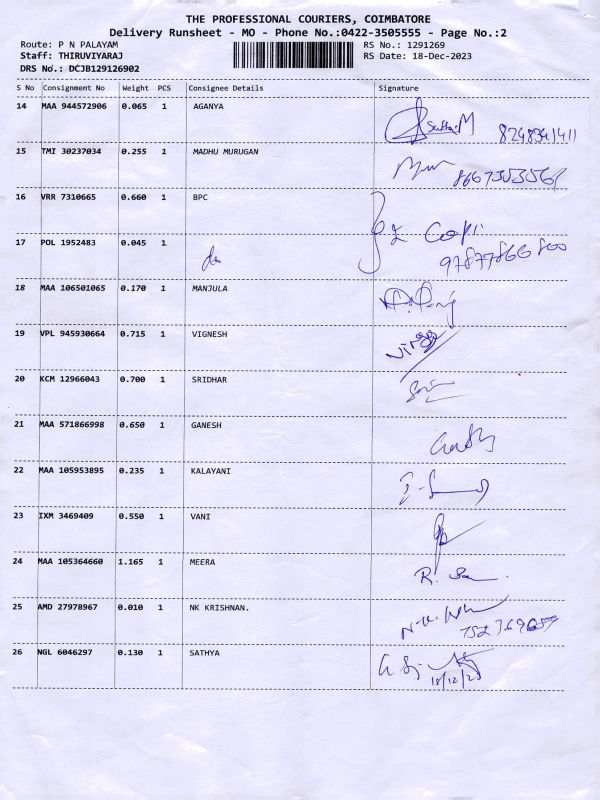 THE PROFESSIONAL COURIERS, COIMBATORE
Delivery Runsheet - MO - Phone No.:0422-3505555 - Page No.:2
Route: P N PALAYAM RS No.: 1291269
Staff: THIRUVIYARAJ RS Date: 18-Dec-2023
DRS No.: DCJB129126902
S No Consignment No Weight PCS Consignee Details Signature
14 MAA 944572906 0.065 1 AGANYA
15 TMI 30237034 0.255 1 MADHU MURUGAN
16 VRR 7310665 0.660 1 BPC
17 POL 1952483 0.045 1
18 MAA 106501065 0.170 1 MANJULA
19 VPL 945930664 0.715 1 VIGNESH
20 KCM 12966043 0.700 1 SRIDHAR
21 MAA 571866998 0.650 1 GANESH
22 MAA 105953895 0.235 1 KALAYANI
23 IXM 3469409 0.550 1 VANI
24 MAA 105364660 1.165 1 MEERA
25 AMD 27978967 0.010 1 NK KRISHNAN.
26 NGL 6046297 0.130 1 SATHYA
18/12/23